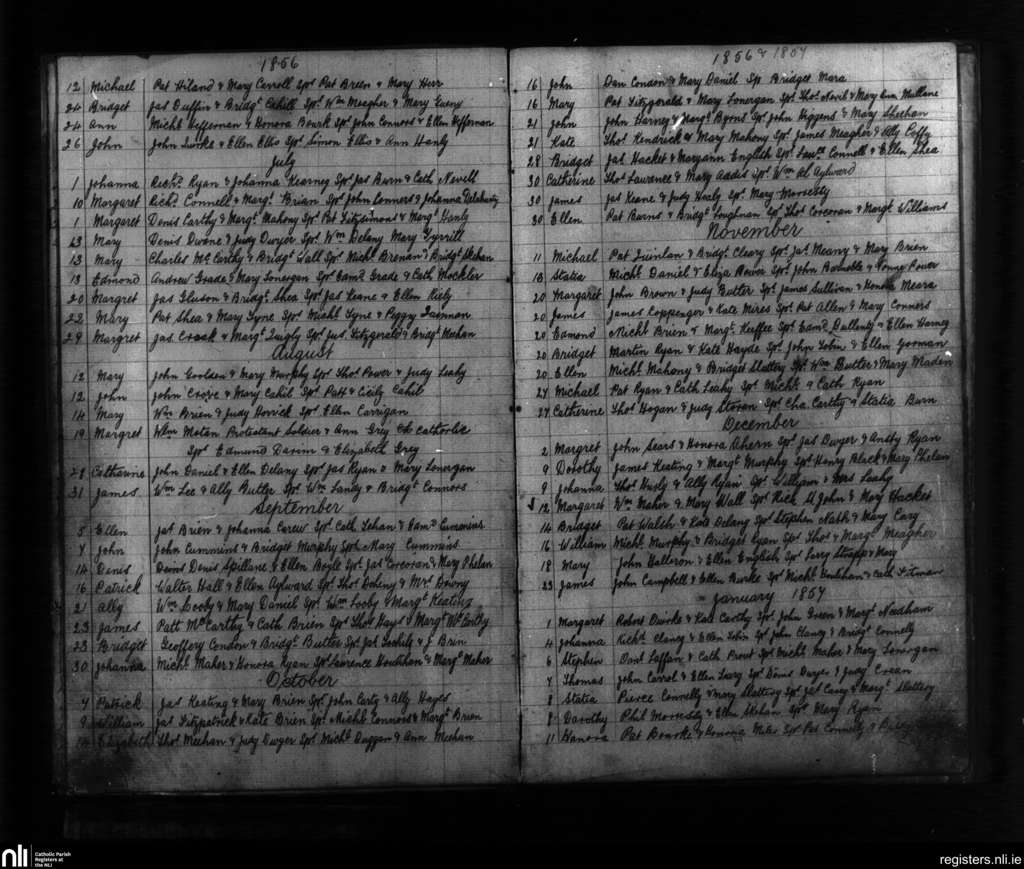 1856
12 Michael Pat Hiland & Mary Carroll Spr Pat Breen & Mary Herr
24 Bridget Jas Duffin & Bridgt Cahill Spr Wm Meagher & Mary
24 Ann Michl Heffernan & Honora Bourk Spr John Connors & Ellen Heffernan
26 John John & Ellen Ellis Spr Simon Ellis & Ann Hanly
July
1 Johanna Richd Ryan & Johanna Kearney Spr Jas Burn & Cath Nevell
10 Margaret Richd Connell & Margt Brian Spr John Connors & Johanna Delahunty
1 Margaret Denis Carthy & Margt Mahony Spr Pat Fitzsimons & Margt Hanly
13 Mary Denis Dwane & Judy Dwyer Spr Wm Delany Mary Tyrrill
13 Mary Charles McCarthy & Bridgt Wall Spr Michl Brenan & Bridgt Skehan
13 Edmond Andrew Grade & Mary Lonergan Spr Edmd Grade & Cath Mockler
20 Margret Jas Gluson & Bridgt Shea Spr Jas Keane & Ellen Kiely
22 Mary Pat Shea & Mary Tyne Spr Michl Tyne & Peggy
29 Margret Jas Croak & Margt Quigly Spr Jas Fitzgerald & Bridgt Meehan
August
12 Mary John Goolden & Mary Murphy Spr Thos Power & Judy Leahy
12 John John Crove & Mary Cahil Spr Patt & Cicily Cahil
14 Mary Wm Brien & Judy Horrick Spr Ellen Carrigan
19 Margret Wlm Motan Protestant Soldier & Ann Grey Catholic
Spr Edmund & Elizabeth Grey
28 Catharine John Daniel & Ellen Delany Spr Jas Ryan & Mary Lonergan
31 James Wm Lee & Ally Butler Spr Wm Landy & Bridgt Connors
September
5 Ellen Jas Brien & Johanna Carew Spr Cath Lehan & Edmd Cummins
7 John John Cummins & Bridget Murphy Spr Mary Cummins
14 Denis Denis Spillane & Ellen Boyle Spr Jas Corcoran & Mary Phelan
16 Patrick Walter Hall & Ellen Aylward Spr Thos Doheny & Mrs Downy
21 Ally Wm Looby & Mary Daniel Spr Wm Looby & Margt Keating
23 James Patt McCarthy & Cath Brien Spr Thos Hays & Margt McCarthy
23 Bridget Geoffery Condon & Bridgt Butler Spr Jas & J Brin
30 Johanna Michl Maher & Honora Ryan Spr Laurence Hourihan & Margt Maher
October
4 Patrick Jas Keating & Mary Brien Spr John Carty & Ally Hayes
9 William Jas Fitzpatrick & Kate Brien Spr Michl Connors & Margt Brien
Elizabeth Thos Meehan & Judy Dwyer Spr Michl Duggan & Ann Meehan
1856 & 1857
16 John Dan Condon & Mary Daniel Sp Bridget Mara
16 Mary Pat Fitzgerald & Mary Lonergan Spr Thos Nevil & Mary Ann Mullane
21 John John Darney & Margt Byrns Spr John Higgens & Mary Sheehan
21 Kate Thos Kendrick & Mary Mahony Spr James Meagher & Ally Coffy
28 Bridget Jas Hacket & Maryann English Spr Lawce Connell & Ellen Shea
30 Catherine Thos Laurence & Mary Addis Spr Wm Aylward
30 James Jas Keane & Judy Healy Spr Mary Morressy
30 Ellen Pat Barns & Bridgt Loughnan Spr Thos Corcoran & Margt Williams
November
11 Michael Pat Quinlan & Bridgt Cleary Spr Jas Meany & Mary Brien
18 Statia Michl Daniel & Eliza Power Spr John & Power
20 Margaret John Brown & Judy Butler Spr James Sullivan & Honora Meara
20 James James Coppenger & Kate Mires Spr Pat Allen & Mary Connors
20 Edmond Michl Brien & Margt Keeffee Spr Edmd & Ellen Harney
20 Bridget Martin Ryan & Kate Hayde Spr John Tobin & Ellen Gorman
20 Ellen Michl Mahony & Bridget Slattery Spr Wm Butler & Mary Maden
24 Michael Pat Ryan & Cath Leahy Spr Michl & Cath Ryan
24 Catherine Thos Hogan & Judy Storan Spr Cha Carthy & Statia Burn
December
2 Margret John Sears & Honora Ahern Spr Jas Dwyer & Ansty Ryan
9 Dorothy James Keating & Margt Murphy Spr Henry Black & Mary Phelan
9 Johanna Thos & Ally Ryan Spr William & Mrs Leahy
12 Margaret Wm Maher & Mary Wall Spr Rick St John & Mary Hacket
14 Bridget Pat Walsh & Kate Delany Spr Stephen Nash & Mary Cary
16 William Michl Murphy & Bridget Ryan Spr Thos & Margt Meagher
18 Mary John Halleron & Ellen English Spr Larry Strapp & Mary
23 James John Campbell & Ellen Burke Spr Michl & Cath
January 1857
1 Margaret Robert Burke & Kate Carthy Spr John Green & Margt Needham
4 Johanna Richd Clancy & Ellen Tobin Spr John Clancy & Bridgt Connelly
6 Stephen Danl Laffan & Cath Prout Spr Michl Maher & Mary Lonergan
7 Thomas John Carrol & Ellen Spr Denis Dwyer & Judy Crean
8 Statia Pierce Connelly & Mary Slattery Spr Jas Casey & Margt Slattery
8 Dorothy Phil Morressy & Ellen Skehan Spr Mary Ryan
11 Hanora Pat Bourke & Honora Spr Pat Connelly &
nli
Catholic Parish
Registers at
the NLI
registers.nli.ie